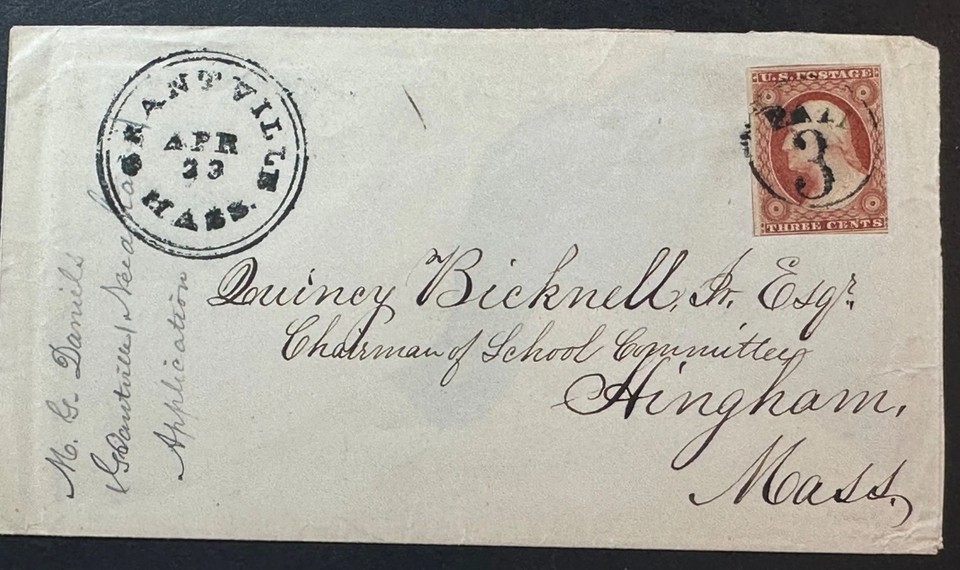 GRANTVILLE
APR
23
MASS.
U.S. POSTAGE
PAID
3
THREE CENTS
Quincy Bicknell, Jr. Esqr.
Chairman of School Committee
Hingham,
Mass.
M. G. Daniels
Grantville / Needham
Application